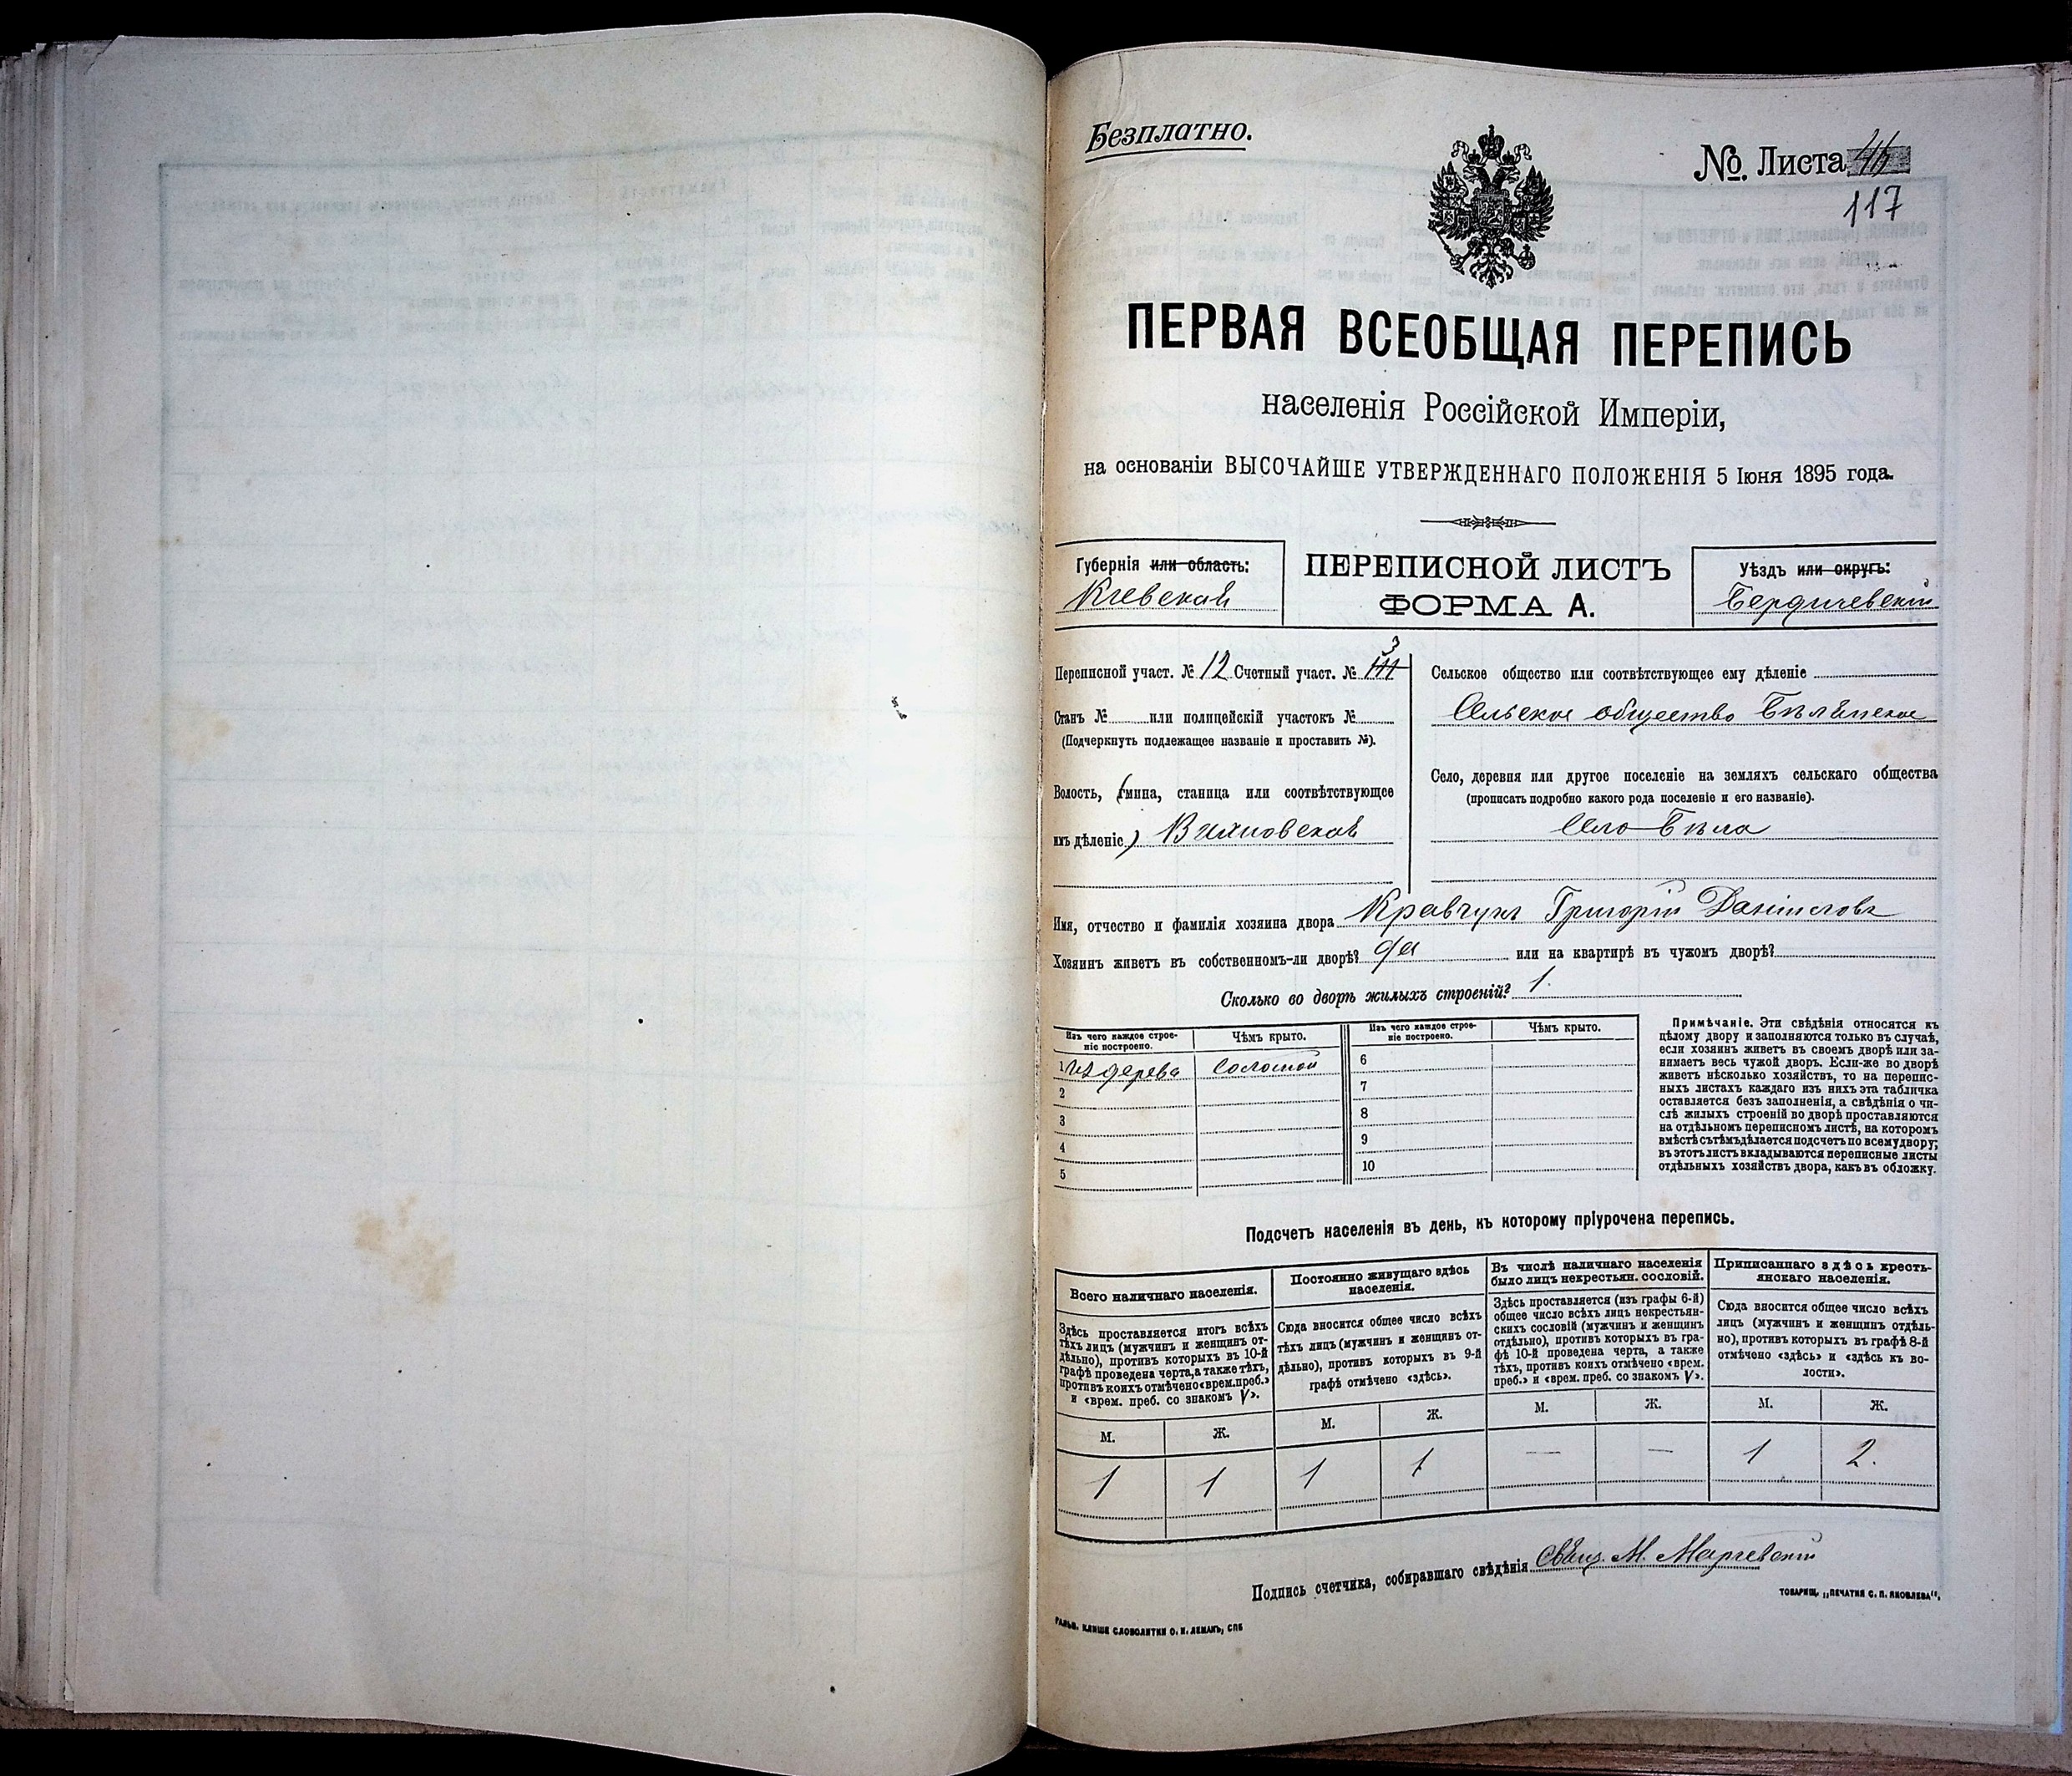 Безплатно.
№ Листа
117
ПЕРВАЯ ВСЕОБЩАЯ ПЕРЕПИСЬ
населенія Россійской Имперіи,
на основаніи ВЫСОЧАЙШЕ УТВЕРЖДЕННАГО ПОЛОЖЕНІЯ 5 Іюня 1895 года.
Губернія или область:
Кіевская
ПЕРЕПИСНОЙ ЛИСТЪ
ФОРМА А.
Уѣздъ или округъ:
Бердичевскій
Переписной участ. № 12 Счетный участ. № III 3
Станъ № или полицейскій участокъ №
(Подчеркнуть подлежащее названіе и проставить №).
Волость, (гмина, станица или соотвѣтствующее
имъ дѣленіе)
Сельское общество или соотвѣтствующее ему дѣленіе
Сельское общество Бѣлянское
Село, деревня или другое поселеніе на земляхъ сельскаго общества
(прописать подробно какого рода поселеніе и его названіе).
Село Бѣла
Имя, отчество и фамилія хозяина двора Кравчукъ Григорій Даніиловъ
Хозяинъ живетъ въ собственномъ-ли дворѣ? да или на квартирѣ въ чужомъ дворѣ?
Сколько во дворѣ жилыхъ строеній? 1.
Изъ чего каждое строе-
ніе построено.
Чѣмъ крыто.
1 Изъ дерева Соломой
2
3
4
5
Изъ чего каждое строе-
ніе построено.
Чѣмъ крыто.
6
7
8
9
10
Примѣчаніе. Эти свѣдѣнія относятся къ
цѣлому двору и заполняются только въ случаѣ,
если хозяинъ живетъ въ своемъ дворѣ или за-
нимаетъ весь чужой дворъ. Если-же во дворѣ
живетъ нѣсколько хозяйствъ, то на перепис-
ныхъ листахъ каждаго изъ нихъ эта табличка
оставляется безъ заполненія, а свѣдѣнія о чи-
слѣ жилыхъ строеній во дворѣ проставляются
на отдѣльномъ переписномъ листѣ, на которомъ
вмѣстѣ съ тѣмъ дѣлается подсчетъ по всему двору;
въ этотъ листъ вкладываются переписные листы
отдѣльныхъ хозяйствъ двора, какъ въ обложку.
Подсчетъ населенія въ день, къ которому пріурочена перепись.
Всего наличнаго населенія.
Здѣсь проставляется итогъ всѣхъ
тѣхъ лицъ (мужчинъ и женщинъ от-
дѣльно), противъ которыхъ въ 10-й
графѣ проведена черта, а также тѣхъ,
противъ коихъ отмѣчено «врем. преб.»
и «врем. преб. со знакомъ V».
М. Ж.
1 1
Постоянно живущаго здѣсь
населенія.
Сюда вносится общее число всѣхъ
тѣхъ лицъ (мужчинъ и женщинъ от-
дѣльно), противъ которыхъ въ 9-й
графѣ отмѣчено «здѣсь».
М. Ж.
1 1
Въ числѣ наличнаго населенія
было лицъ некрестьян. сословій.
Здѣсь проставляется (изъ графы 6-й)
общее число всѣхъ лицъ некрестьян-
скихъ сословій (мужчинъ и женщинъ
отдѣльно), противъ которыхъ въ гра-
фѣ 10-й проведена черта, а также
тѣхъ, противъ коихъ отмѣчено «врем.
преб.» и «врем. преб. со знакомъ V».
М. Ж.
— —
Приписаннаго здѣсь кресть-
янскаго населенія.
Сюда вносится общее число всѣхъ
лицъ (мужчинъ и женщинъ отдѣль-
но), противъ которыхъ въ графѣ 8-й
отмѣчено «здѣсь» и «здѣсь къ во-
лости».
М. Ж.
1 2.
Подпись счетчика, собиравшаго свѣдѣнія Свящ. М.
ТОВАРИЩ. „ПЕЧАТНЯ С. П. ЯКОВЛЕВА".
ГАЛЬВ. КЛИШЕ СЛОВОЛИТНИ О. И. ЛЕМАНЪ, СПБ